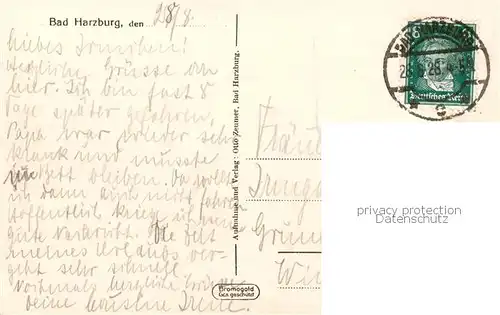 Bad Harzburg, den 28/8.
Liebes Irmchen!
Herzliche Grüsse von
hier. Ich bin fast 8
Tage später gefahren,
Papa war wieder sehr
krank und musste
im Bett bleiben. Da wollt
ich dann auch nicht fahren
Hoffentlich krieg ich von
gute Nachricht. Die Zeit
meines Urlaubs ver-
geht sehr schnell.
Nochmals herzliche Grüsse
Deine Irene.
Aufnahme und Verlag: Otto Zeuner, Bad Harzburg.
Bromogold
Ges. geschützt
BAD HARZBURG
8
Deutsches Reich
Fräu
Irmga
Grün
Wi
privacy protection
Datenschutz